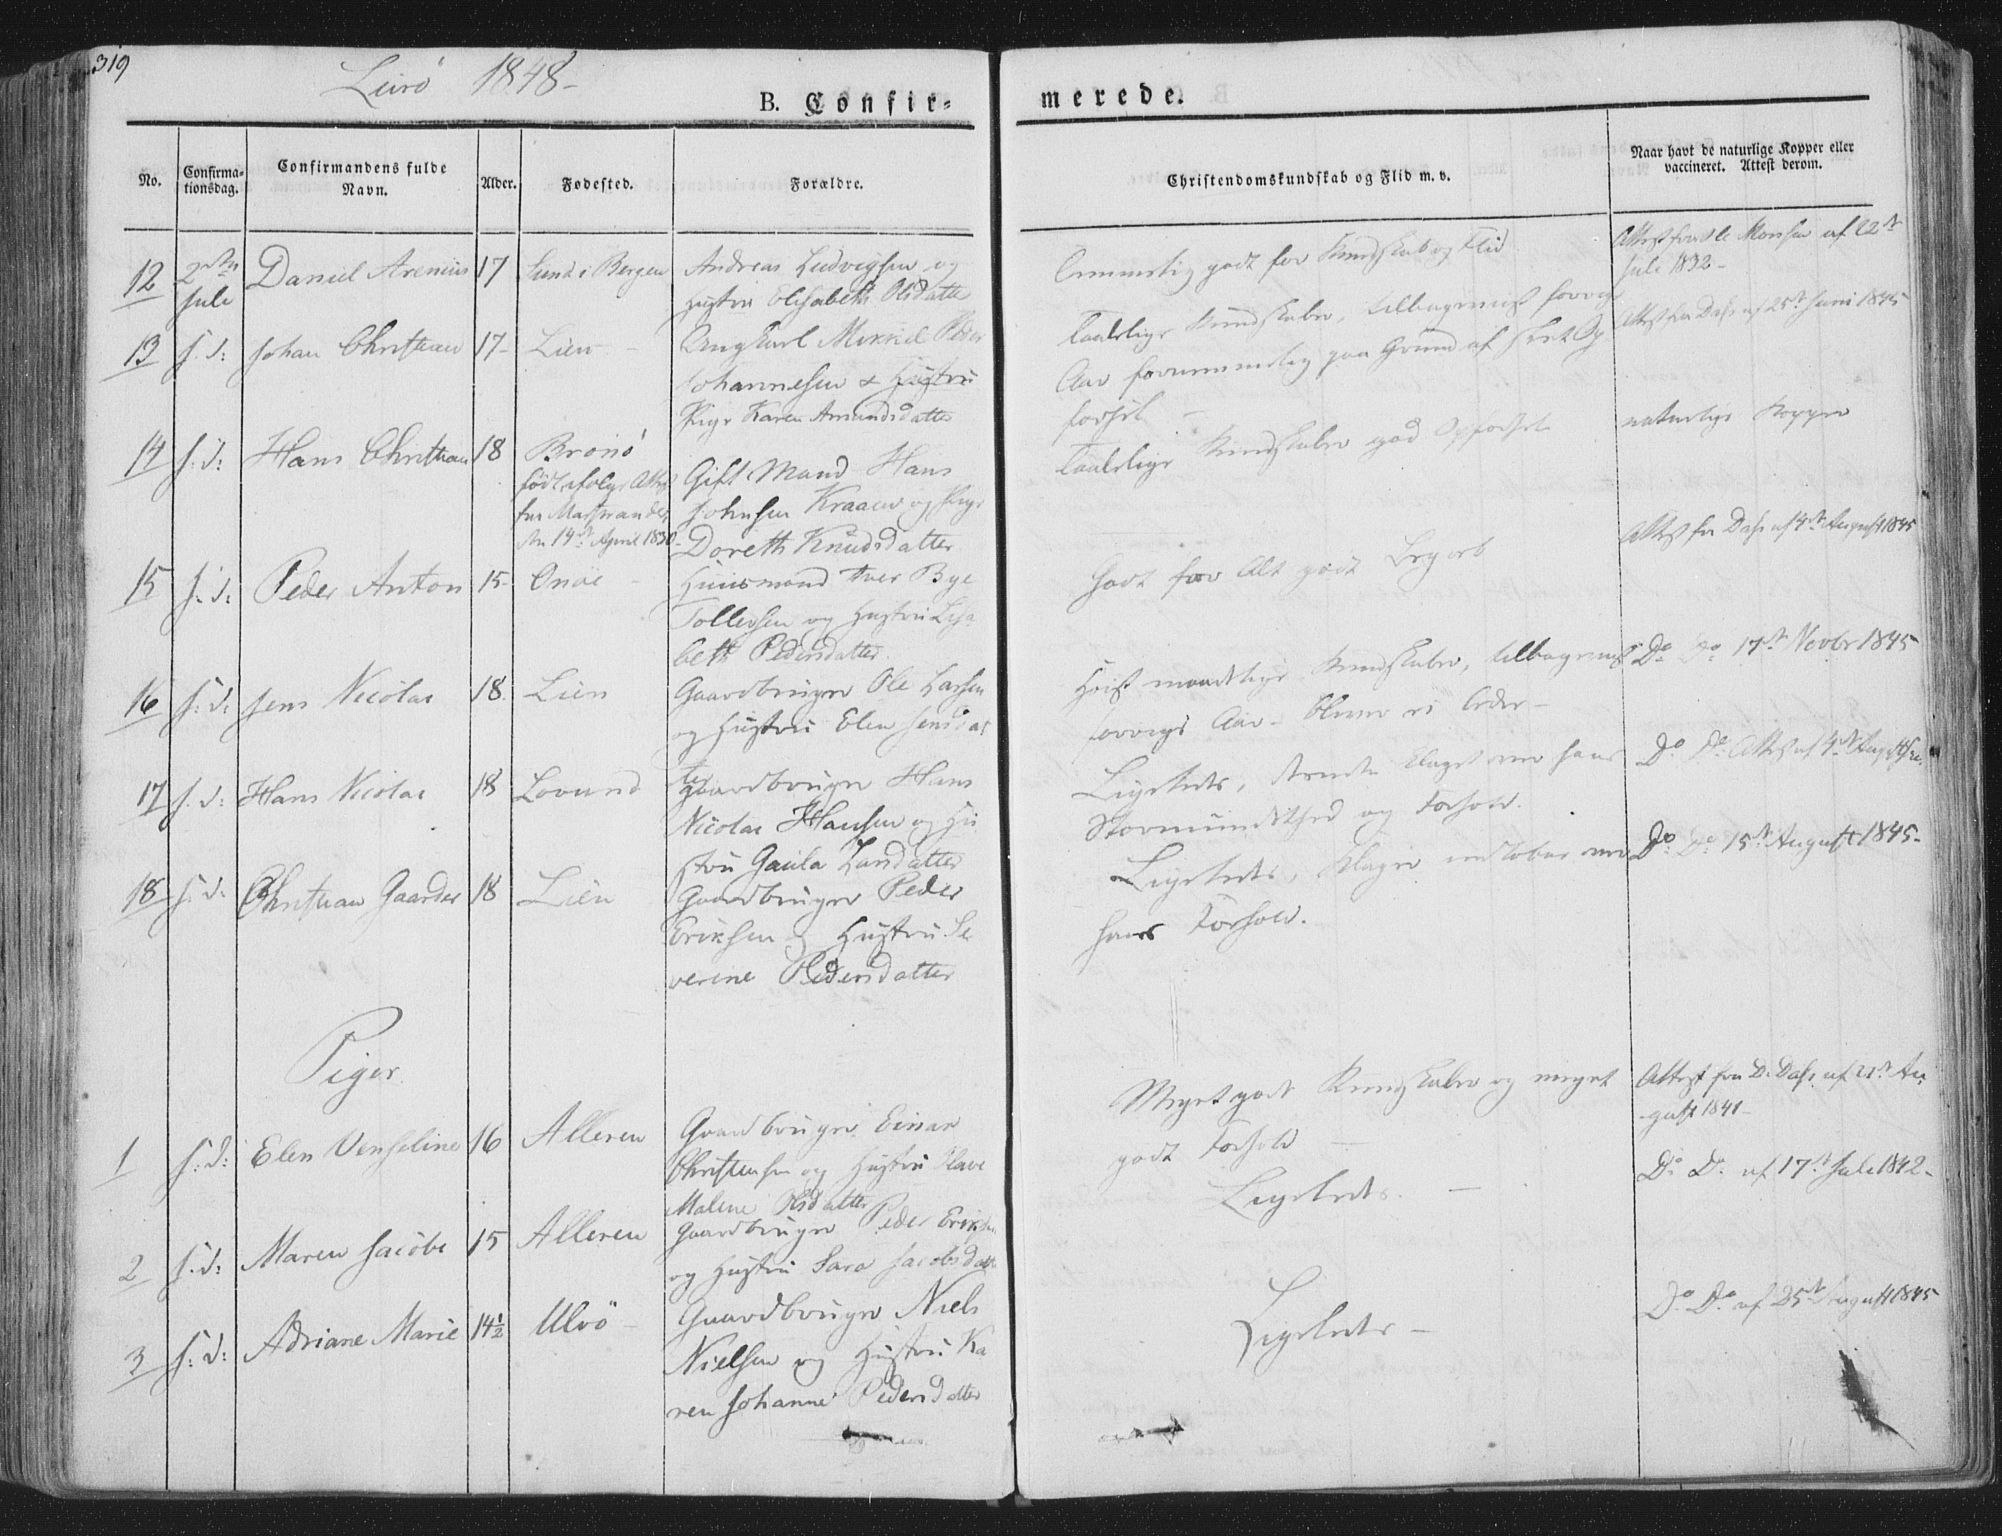 319
Lurö 1848-
B. Confir-
merede.
No.
Confirma-
tionsdag.
Confirmandens fulde
Navn.
Alder.
Fødested.
Forældre.
Christendomskundskab og Flid m. v.
Naar havt de naturlige Kopper eller
vaccineret. Attest derom.
12
2den
Juli
Daniel Arenius
17
Sund i Bergen
Andreas Ludvigsen og
Hustru Elisabeth Olsdatter
godt for Kundskab og Flid
Attest fra Ole Monsen af 22de
Juli 1832-
13
s. d:
Johan Christian
17-
Lien -
Ungkarl Mikkel Peder
Johannesen & Hustru
Pige Karen Amundsdatter
Taalelige Kundskaber, tilbageviist forrige
Aar fornemmelig paa Grund af slet Op
førsel -
Attest fra Dahl af 25de Juni 1845
14
s. d:
Hans Christian
18
Bronö
født ifølge Attest
den 14de April 1830-
Gift Mand Hans
Johnsen Kraaen og Pige
Doreth Knudsdatter
Taalelige Kundskaber god Opførsel
naturlige Kopper
15
s. d:
Peder Anton
15-
Onöe -
Huusmand Iver Bye
Tollevsen og Hustru Lisa
beth Pedersdatter
Godt for Alt godt Begreb
Attest fra Dahl af 4de August 1845
16
s. d:
Jens Nicolai
18.
Lien
Gaardbruger Ole Larsen
og Hustru Elen Jensdat
ter
Høist maadelige Kundskaber, tilbageviist
forrige Aar -
Do Do 17de Novbr 1845
17
s. d:
Hans Nicolai
18
Lovund
Gaardbruger Hans
Nicolai Hansen og Hu
stru Gunla Larsdatter
Ligeledes, klaget over hans
Stormundethed og Forhold.
Do Do Attest af 4de August
18
s. d:
Christian Gaarder
18
Lien
Gaardbruger Peder
Eriksen og Hustru Se
verine Pedersdatter
Ligeledes, Klager over
hans Forhold.
Do Do 15de August 1845-
Piger.
1
s: d:
Elen Venseline
16
Alleren
Gaardbruger Einar
Christensen og Hustru Olave
Malene Olsdatter
Meget godt Kundskaber og meget
godt Forhold -
Attest fra D. Dahl af 21de Au
gust 1841-
2
s. d:
Maren Jacobe
15
Alleren
Gaardbruger Peder Eriksen
og Hustru Sara Jacobsdatt
Ligeledes. -
Do Do af 17de Juli 1842-
3
s: d:
Adriane Marie
14½
Ulvö -
Gaardbruger Niels
Nielsen og Hustru Ka
ren Johanne Pedersdatter
Ligeledes -
Do Do af 25de August 1845